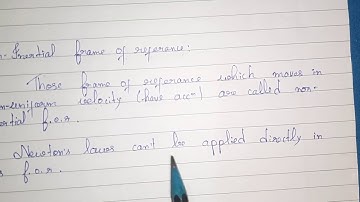 n-Inertial frame of referance:
Those frame of referance which moves in
n-uniform velocity (have accn) are called non-
ertial f.o.r.
Newton's laws can't be applied directly in
s f.o.r.